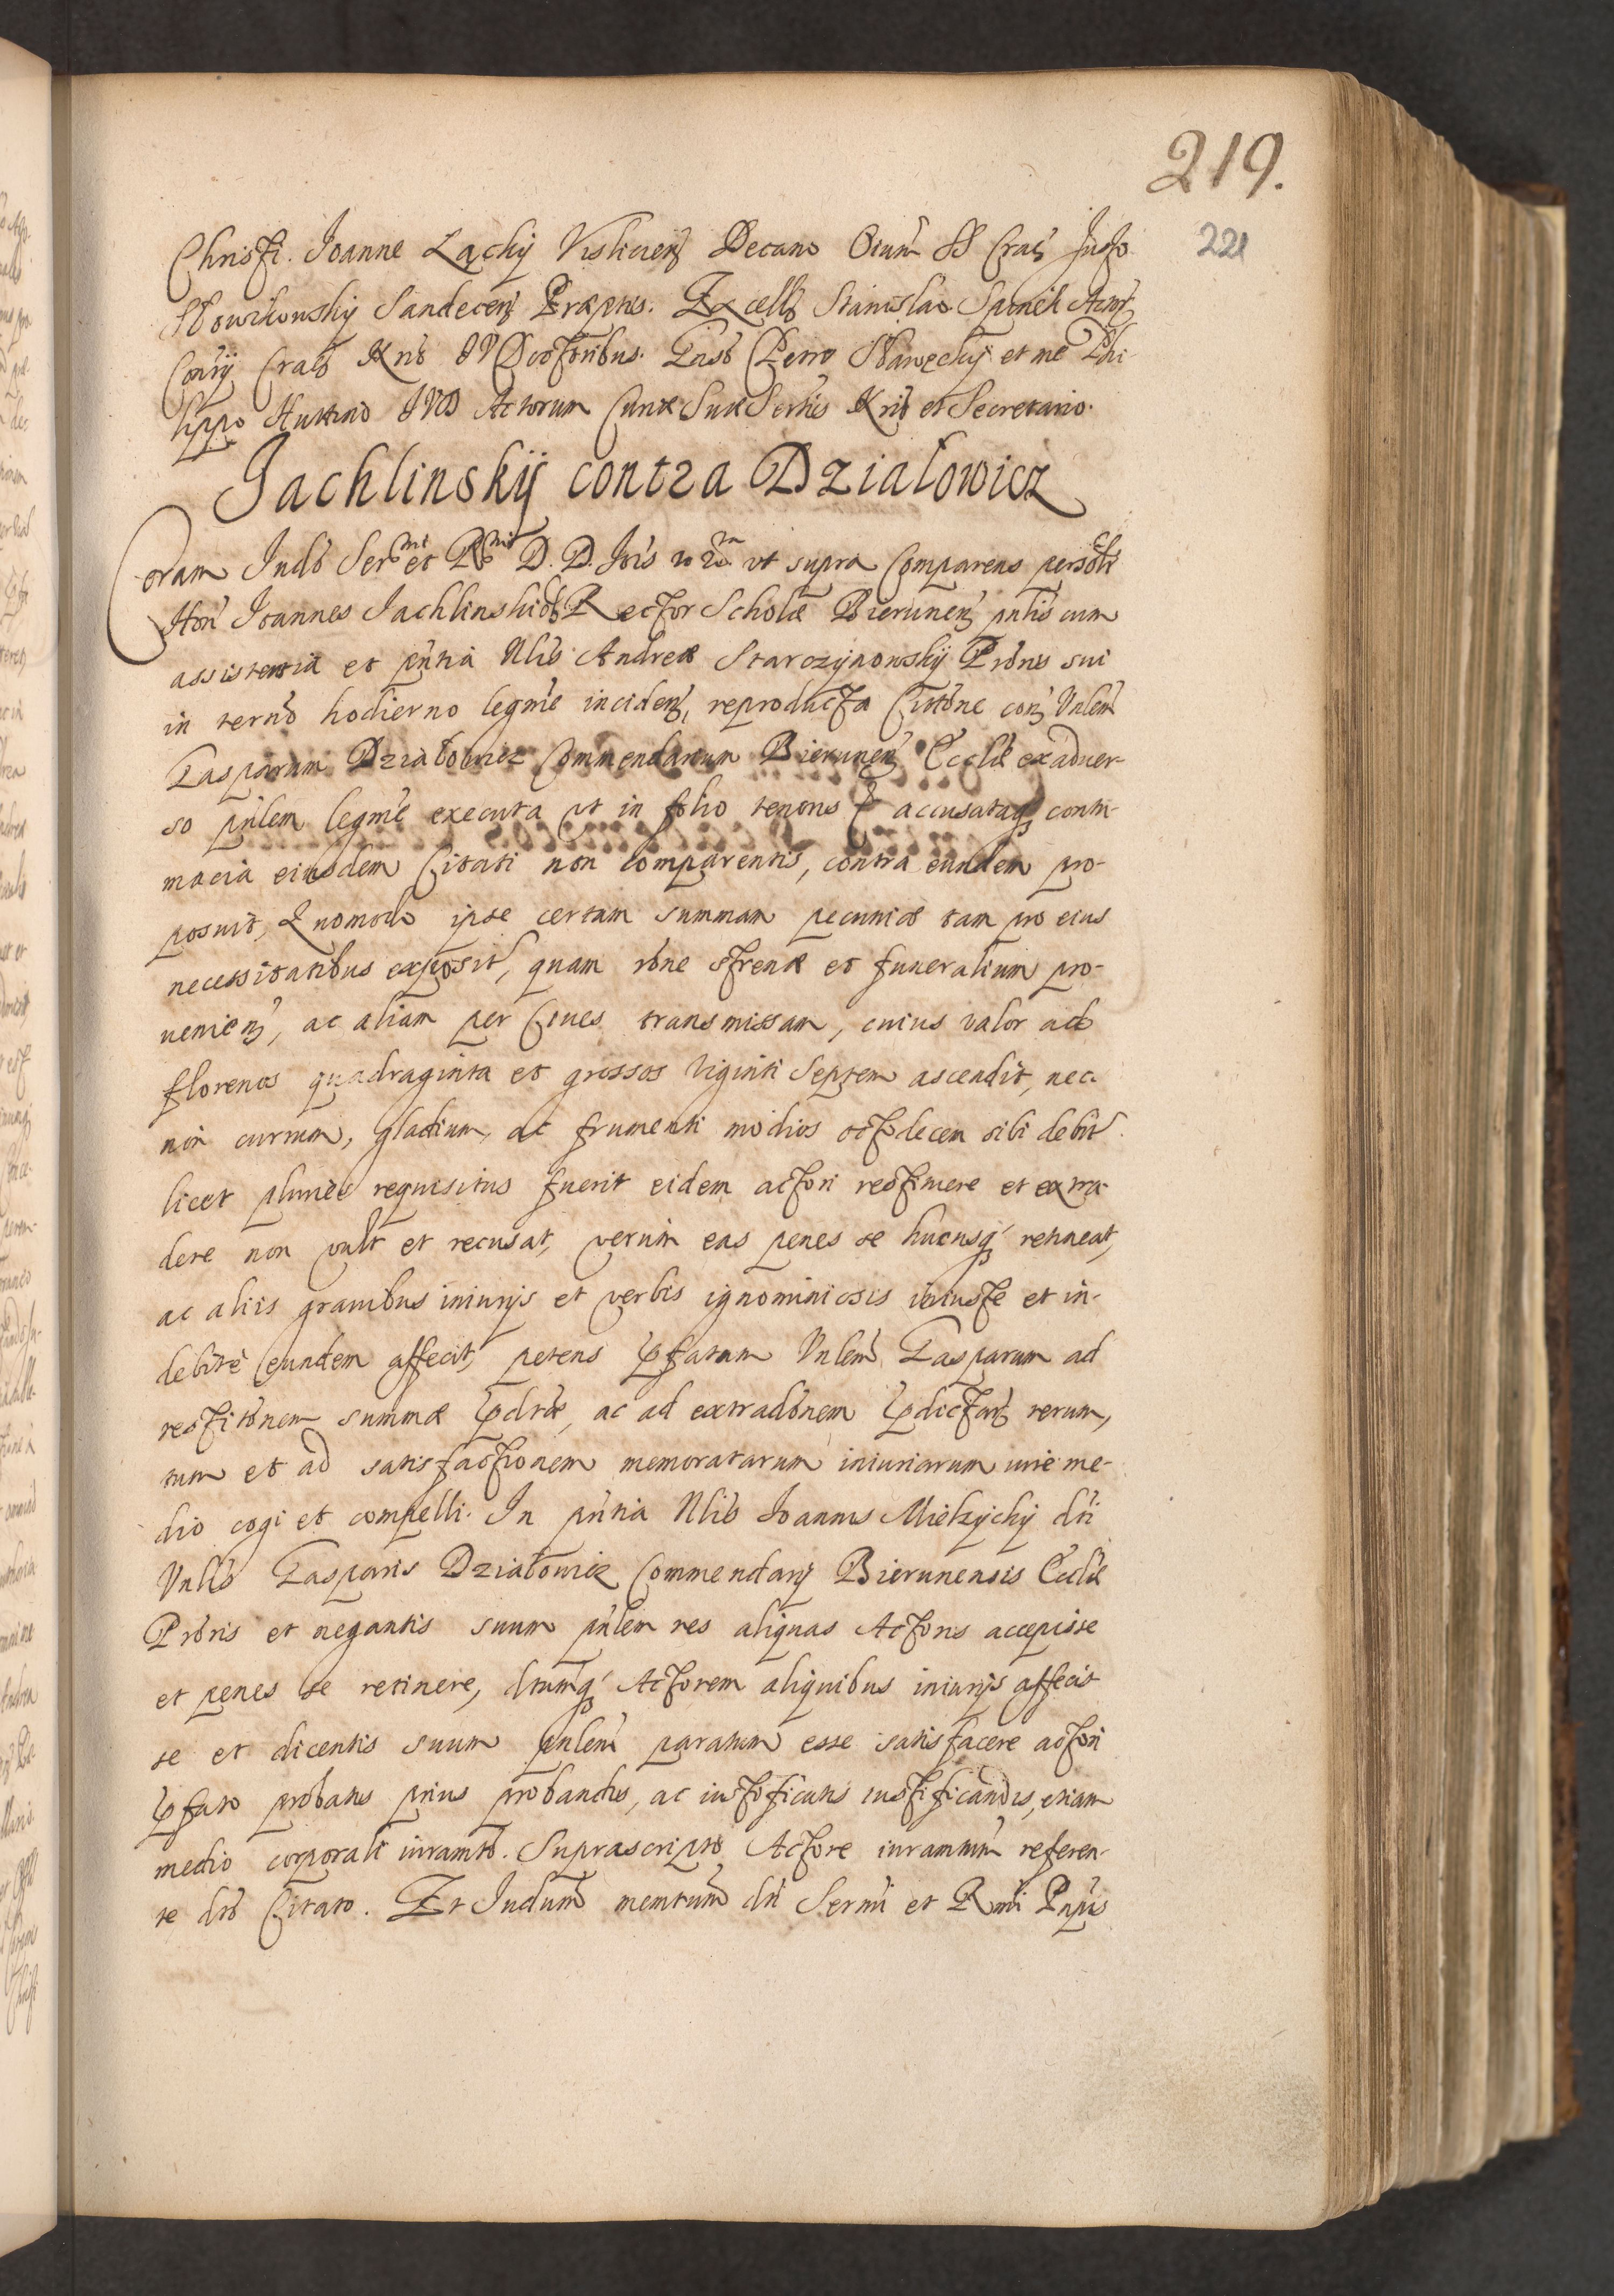 219.
221
Christi. Joanne Lachÿ Visliciens Decano Oium SS Crac Justo
Słowikowskÿ Sandecen Præptis. Excell Stanislao Actor
Conrij Crac Kris JV Doctoribus. Gnso Petro Sławęckÿ et me Phi-
lippo Huttino JVD Actorum Curiæ Suæ Sertis Kris et Secretario.
Jachlinskÿ contra Działowicz
Coram Judo Sermi et Rmi D. D. Jois ut supra Comparens persolr
Hon Joannes Jachlinskiŏ Rector Scholæ Bierunen pntis cum
assistentia et pntia Nlis Andreæ Starozÿnowskÿ Prŏris sui
in termō hodierno legme inciden, reproducta Citōne con Vnlem
Gasparum Działowicz Commendarium Bierunen Eccliæ exaduer-
so pnlem legme executa ut in folio tenoris & accusataq contu-
macia eiusdem Citati non comparentis, contra eundem pro-
posuit, Quomodo ipse certam summam pecuniæ tam pro eius
necessitatibus exposit, quam rōne strenæ et funeralium pro-
uenien, ac aliam per Ciues transmissam, cuius valor ad
florenos quadraginta et grossos viginti septem ascendit, nec
non currum, gladium, ac frumenti modios octodecem sibi debit
licet pluries requisitus fuerit eidem actori restituere et extra-
dere non vult et recusat, verum eas penes se hucusq retineat,
ac aliis grauibus iniurijs et verbis ignominiosis iniuste et in-
debite eundem affecit, petens pfatum Vnlem Gasparum ad
restitōnem summæ pdtæ, ac ad extradōnem pdictar rerum,
tum et ad satisfactionem memoratarum iniuriarum iurie me-
dio cogi et compelli. In pntia Nlis Joannis Mielzÿckÿ dti
Vnlis Gasparis Działowicz Commendarij Bierunensis Eccliæ
Prŏris et negantis suum pnlem res aliquas Actoris accepisse
et penes se retinere, dtumq Actorem aliquibus iniurijs affecis-
se et dicentis suum pnlem paratum esse satisfacere actori
pfato probatis prius probandis, ac iustificatis iustificandis, etiam
medio corporali iuramto. Suprascripto Actore iuramtum referen-
te dto Citato. Et Judum memtum dti Sermi et Rmi Pnpis